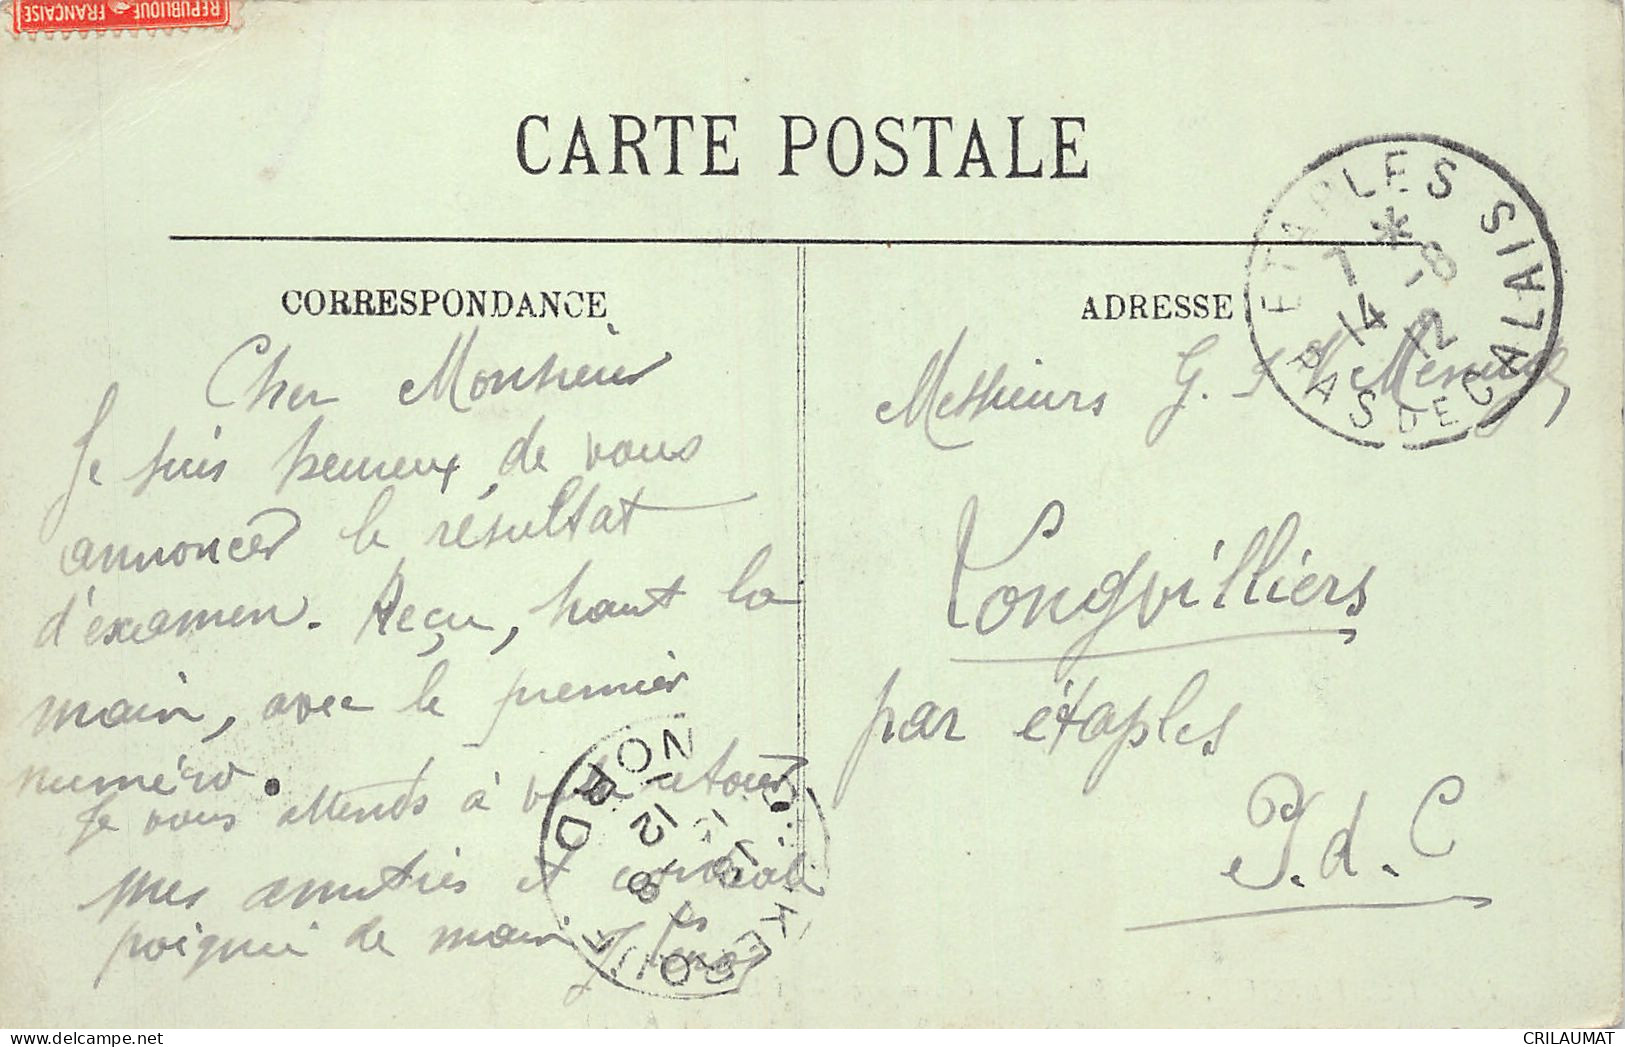 REPUBLIQUE FRANÇAISE
CARTE POSTALE
CORRESPONDANCE
Cher Monsieur
Je suis heureux de vous
annoncer le résultat
d'examen. Reçu, haut la
main, avec le premier
numéro.
Je vous attends à votre retour
mes amitiés et cordiale
poignée de main
ADRESSE
Messieurs G.
Longvilliers
par étaples
P. d. C
ETAPLES
PAS DE CALAIS
7 * -8
14 12
NORD
12
8
CRILAUMAT